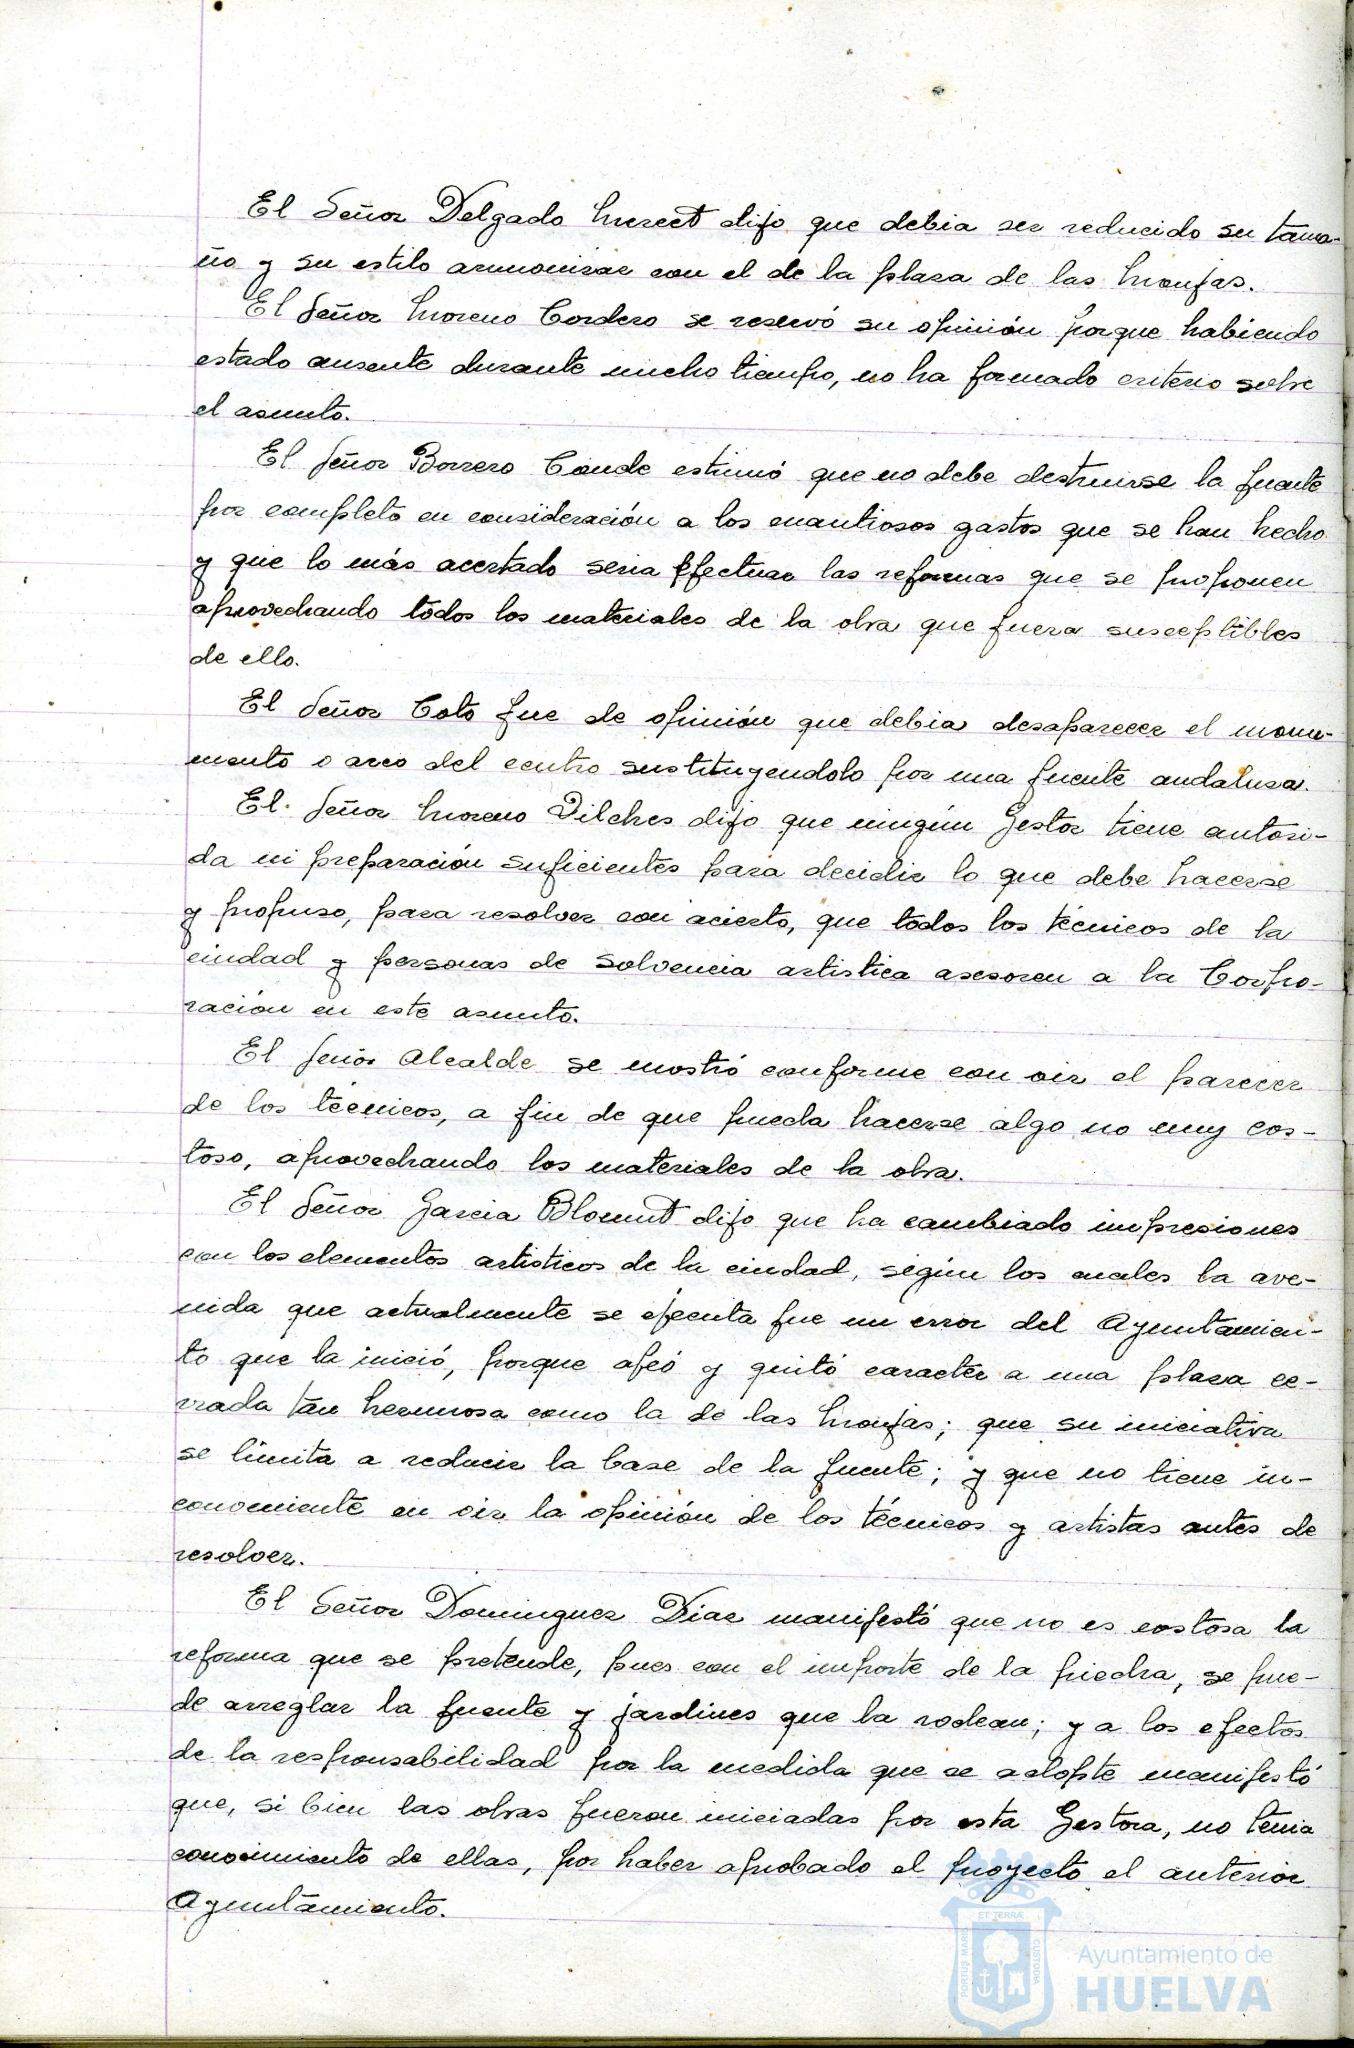 El Señor Delgado Merect dijo que debia ser reducido su tama-
ño y su estilo armonizar con el de la plaza de las Monjas.
El Señor Moreno Cordero se reservó su opinión porque habiendo
estado ausente durante mucho tiempo, no ha formado criterio sobre
el asunto.
El Señor Borrero Conde estimó que no debe destruirse la fuente
por completo en consideración a los cuantiosos gastos que se han hecho
y que lo más acertado seria efectuar las reformas que se proponen
aprovechando todos los materiales de la obra que fuera susceptibles
de ello.
El Señor Coto fue de opinión que debia desaparecer el monu-
mento o arco del centro sustituyendolo por una fuente andaluza.
El Señor Moreno Vilches dijo que ningún Gestor tiene autori-
da ni preparación suficientes para decidir lo que debe hacerse
y propuso, para resolver con acierto, que todos los técnicos de la
ciudad y personas de solvencia artistica asesoren a la Corpo-
ración en este asunto.
El Señor Alcalde se mostró conforme con oir el parecer
de los técnicos, a fin de que pueda hacerse algo no muy cos-
toso, aprovechando los materiales de la obra.
El Señor Garcia Blount dijo que ha cambiado impresiones
con los elementos artisticos de la ciudad, según los cuales la ave-
nida que actualmente se ejecuta fue un error del Ayuntamien-
to que la inició, porque afeó y quitó caracter a una plaza ce-
rrada tan hermosa como la de las Monjas; que su iniciativa
se limita a reducir la base de la fuente; y que no tiene in-
conveniente en oir la opinión de los técnicos y artistas antes de
resolver.
El Señor Dominguez Diaz manifestó que no es costosa la
reforma que se pretende, pues con el importe de la piedra, se pue-
de arreglar la fuente y jardines que la rodean; y a los efectos
de la responsabilidad por la medida que se adopte manifestó
que, si bien las obras fueron iniciadas por esta Gestora, no tenia
conocimiento de ellas, por haber aprobado el proyecto el anterior
Ayuntamiento.
PORTUS MARIS ET TERRÆ CUSTODIA
Ayuntamiento de
HUELVA